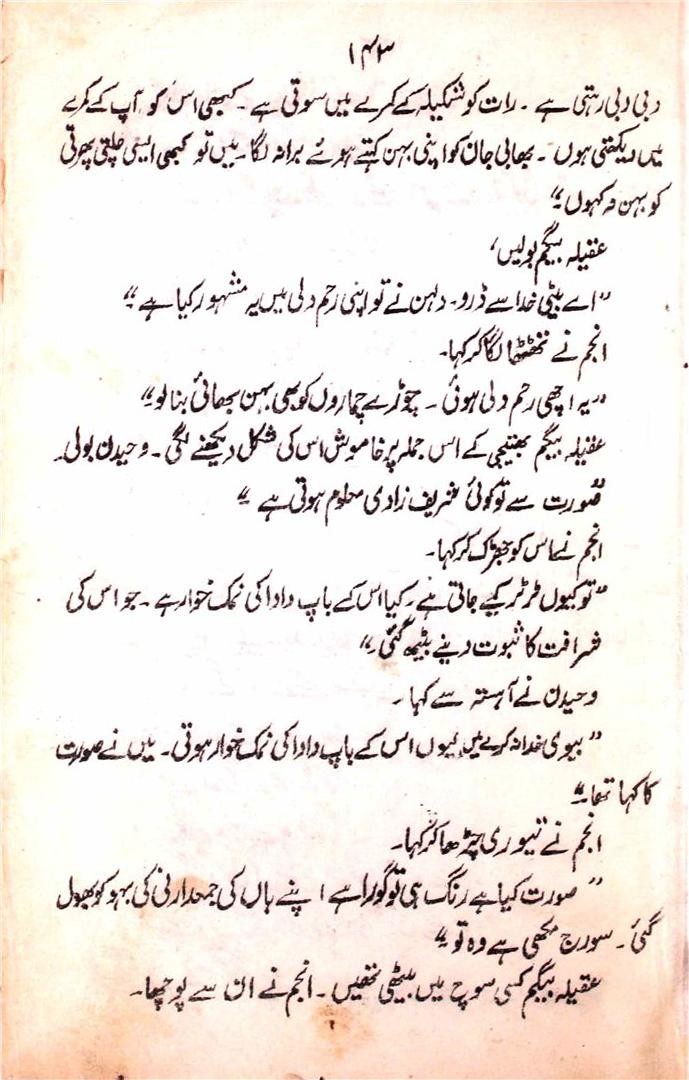 ۱۴۳
دبی دبی رہتی ہے ۔ رات کو شکیلہ کے کمرے میں سوتی ہے ۔ کبھی اس کو آپ کے کمرے
میں دیکھتی ہوں ۔ بھابی جان کو اپنی بہن کہتے ہوئے برا نہ لگا ۔ میں تو کبھی ایسی چلتی پھرتی
کو بہن نہ کہوں ۔"
عقیلہ بیگم بولیں،
"اے بیٹی خدا سے ڈرو ۔ دلہن نے تو اپنی رحم دلی میں یہ مشہور کیا ہے ۔"
انجم نے ٹھٹھا لگا کر کہا۔
"یہ اچھی رحم دلی ہوئی ۔ چوڑے چماروں کو بھی بہن بھائی بنا لو ۔"
عقیلہ بیگم بھتیجی کے اس جملہ پر خاموش اس کی شکل دیکھنے لگی ۔ وحیدن بولی ۔
"صورت سے تو کوئی شریف زادی معلوم ہوتی ہے ۔"
انجم نے اس کو جھڑک کر کہا۔
"تو کیوں ٹرٹر کیے جاتی ہے ۔ کیا اس کے باپ دادا کی نمک خوار ہے ۔ جو اس کی
شرافت کا ثبوت دینے بیٹھ گئی ۔"
وحیدن نے آہستہ سے کہا ۔
"بیوی خدا نہ کرے میں کیوں اس کے باپ دادا کی نمک خوار ہوتی ۔ میں نے صورت
کا کہا تھا ۔"
انجم نے تیوری چڑھا کر کہا۔
"صورت کیا ہے رنگ ہی تو گورا ہے اپنے ہاں کی جمعدارنی کی بہو کو بھول
گئی ۔ سورج مکھی ہے وہ تو ۔"
عقیلہ بیگم کسی سوچ میں بیٹھی تھیں ۔ انجم نے ان سے پوچھا ۔